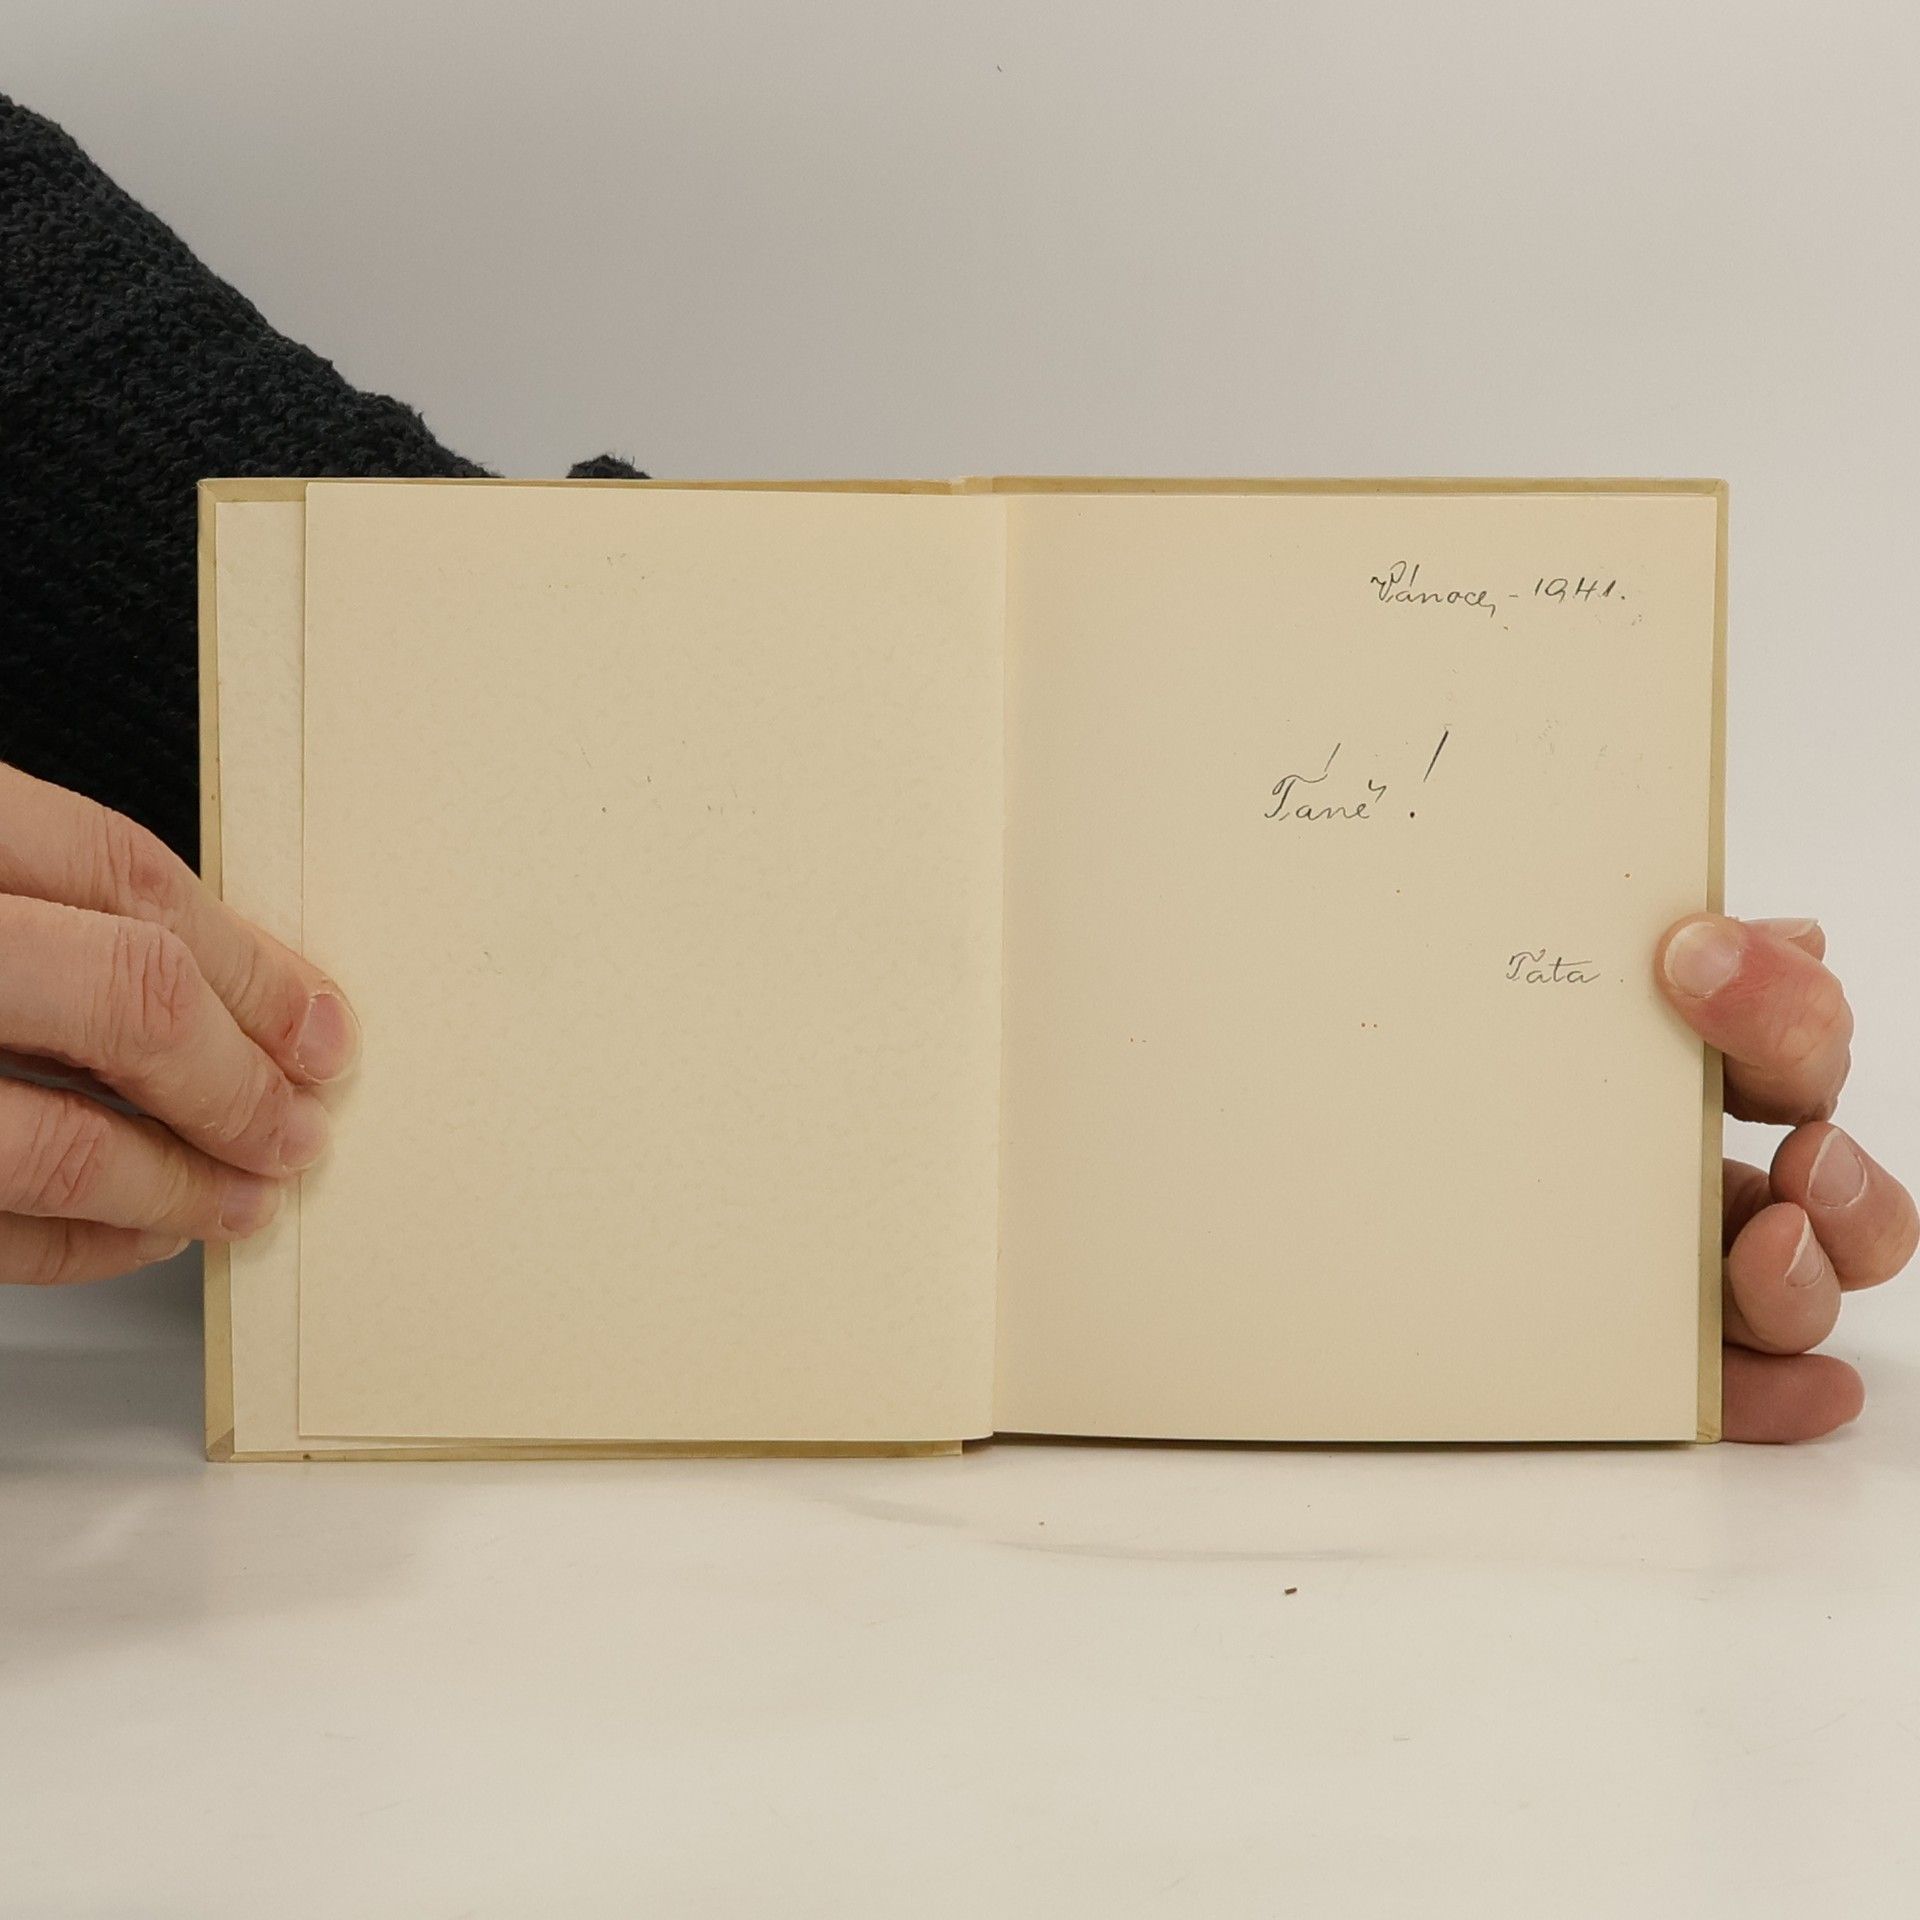 Vánoce, - 1941.
Táně!
Tata.